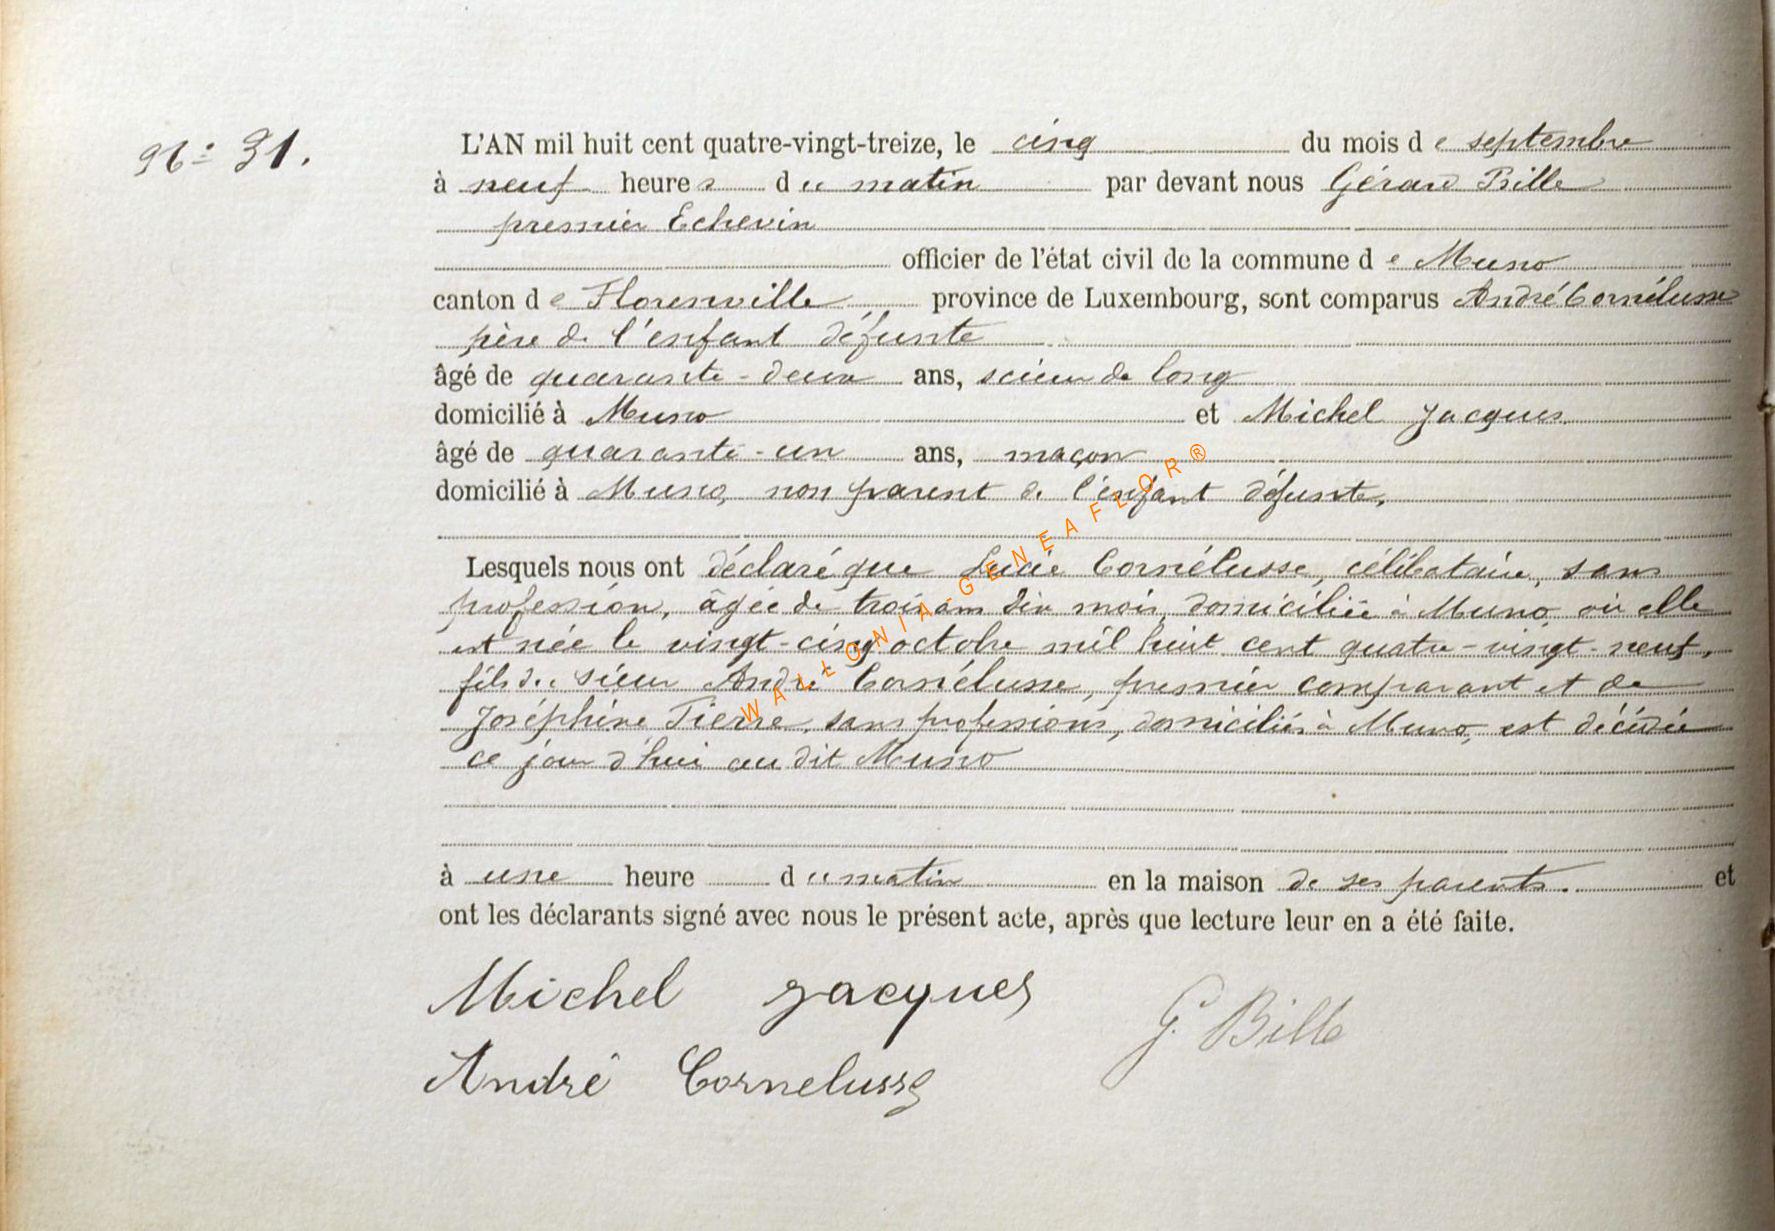 N° 31.
L'AN mil huit cent quatre-vingt-treize, le cinq du mois de septembre
à neuf heures du matin par devant nous Gérard Bille
premier Echevin
officier de l'état civil de la commune de Muno
canton de Florenville province de Luxembourg, sont comparus André Cornélusse
père de l'enfant défunte
âgé de quarante-deux ans, scieur de long
domicilié à Muno et Michel Jacques
âgé de quarante-un ans, maçon
domicilié à Muno, non parent de l'enfant défunte,
Lesquels nous ont déclaré que Lucie Cornélusse, célibataire, sans
profession, âgée de trois ans dix mois, domiciliée à Muno où elle
est née le vingt-cinq octobre mil huit cent quatre-vingt-neuf,
fils du sieur André Cornélusse, premier comparant et de
Joséphine Pierre, sans professions, domiciliés à Muno, est décédée
ce jour d'hui au dit Muno
à une heure du matin en la maison de ses parents. et
ont les déclarants signé avec nous le présent acte, après que lecture leur en a été faite.
Michel Jacques
G. Bille
André Cornelusse
WALLONIA-GENEAFLOR®